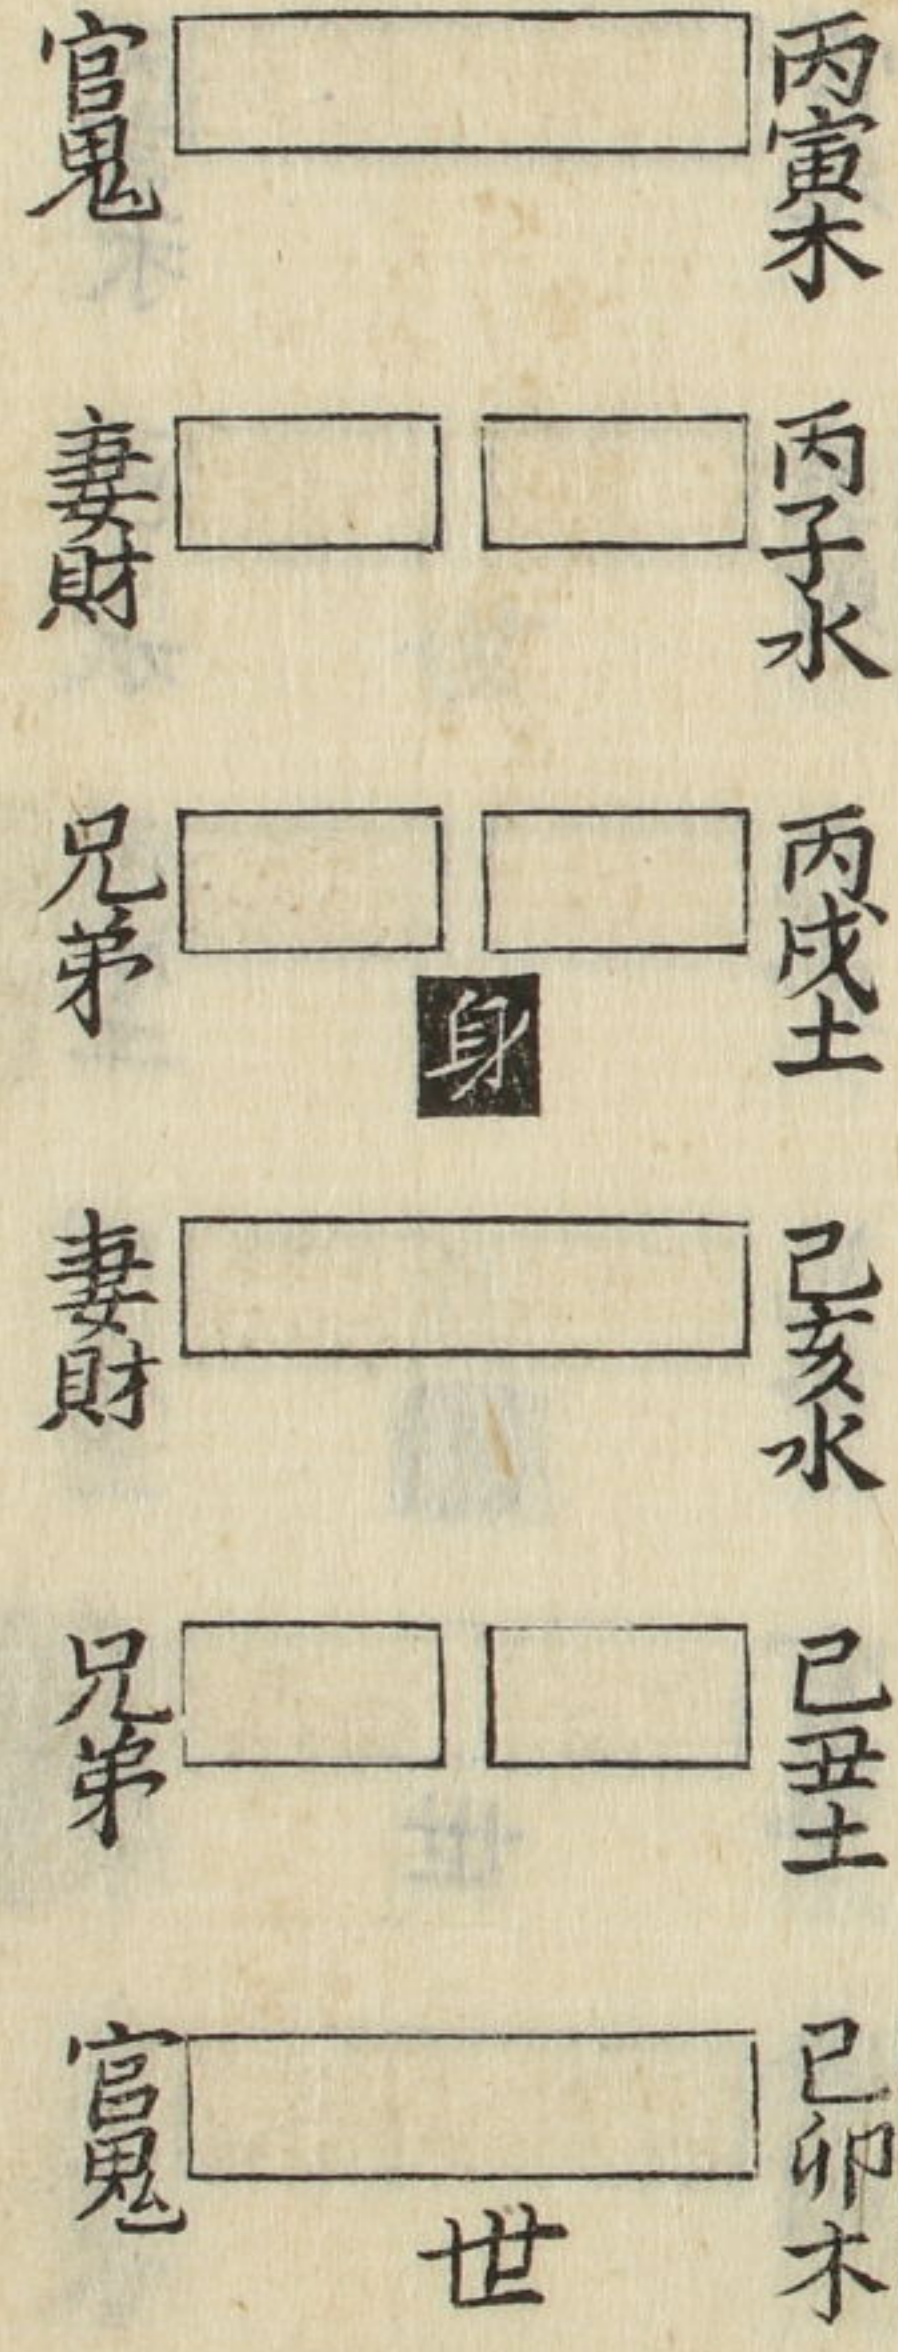 丙寅木
官鬼
丙子水
妻財
丙戌土
兄弟
身
己亥水
妻財
己丑土
兄弟
己卯木
官鬼
世